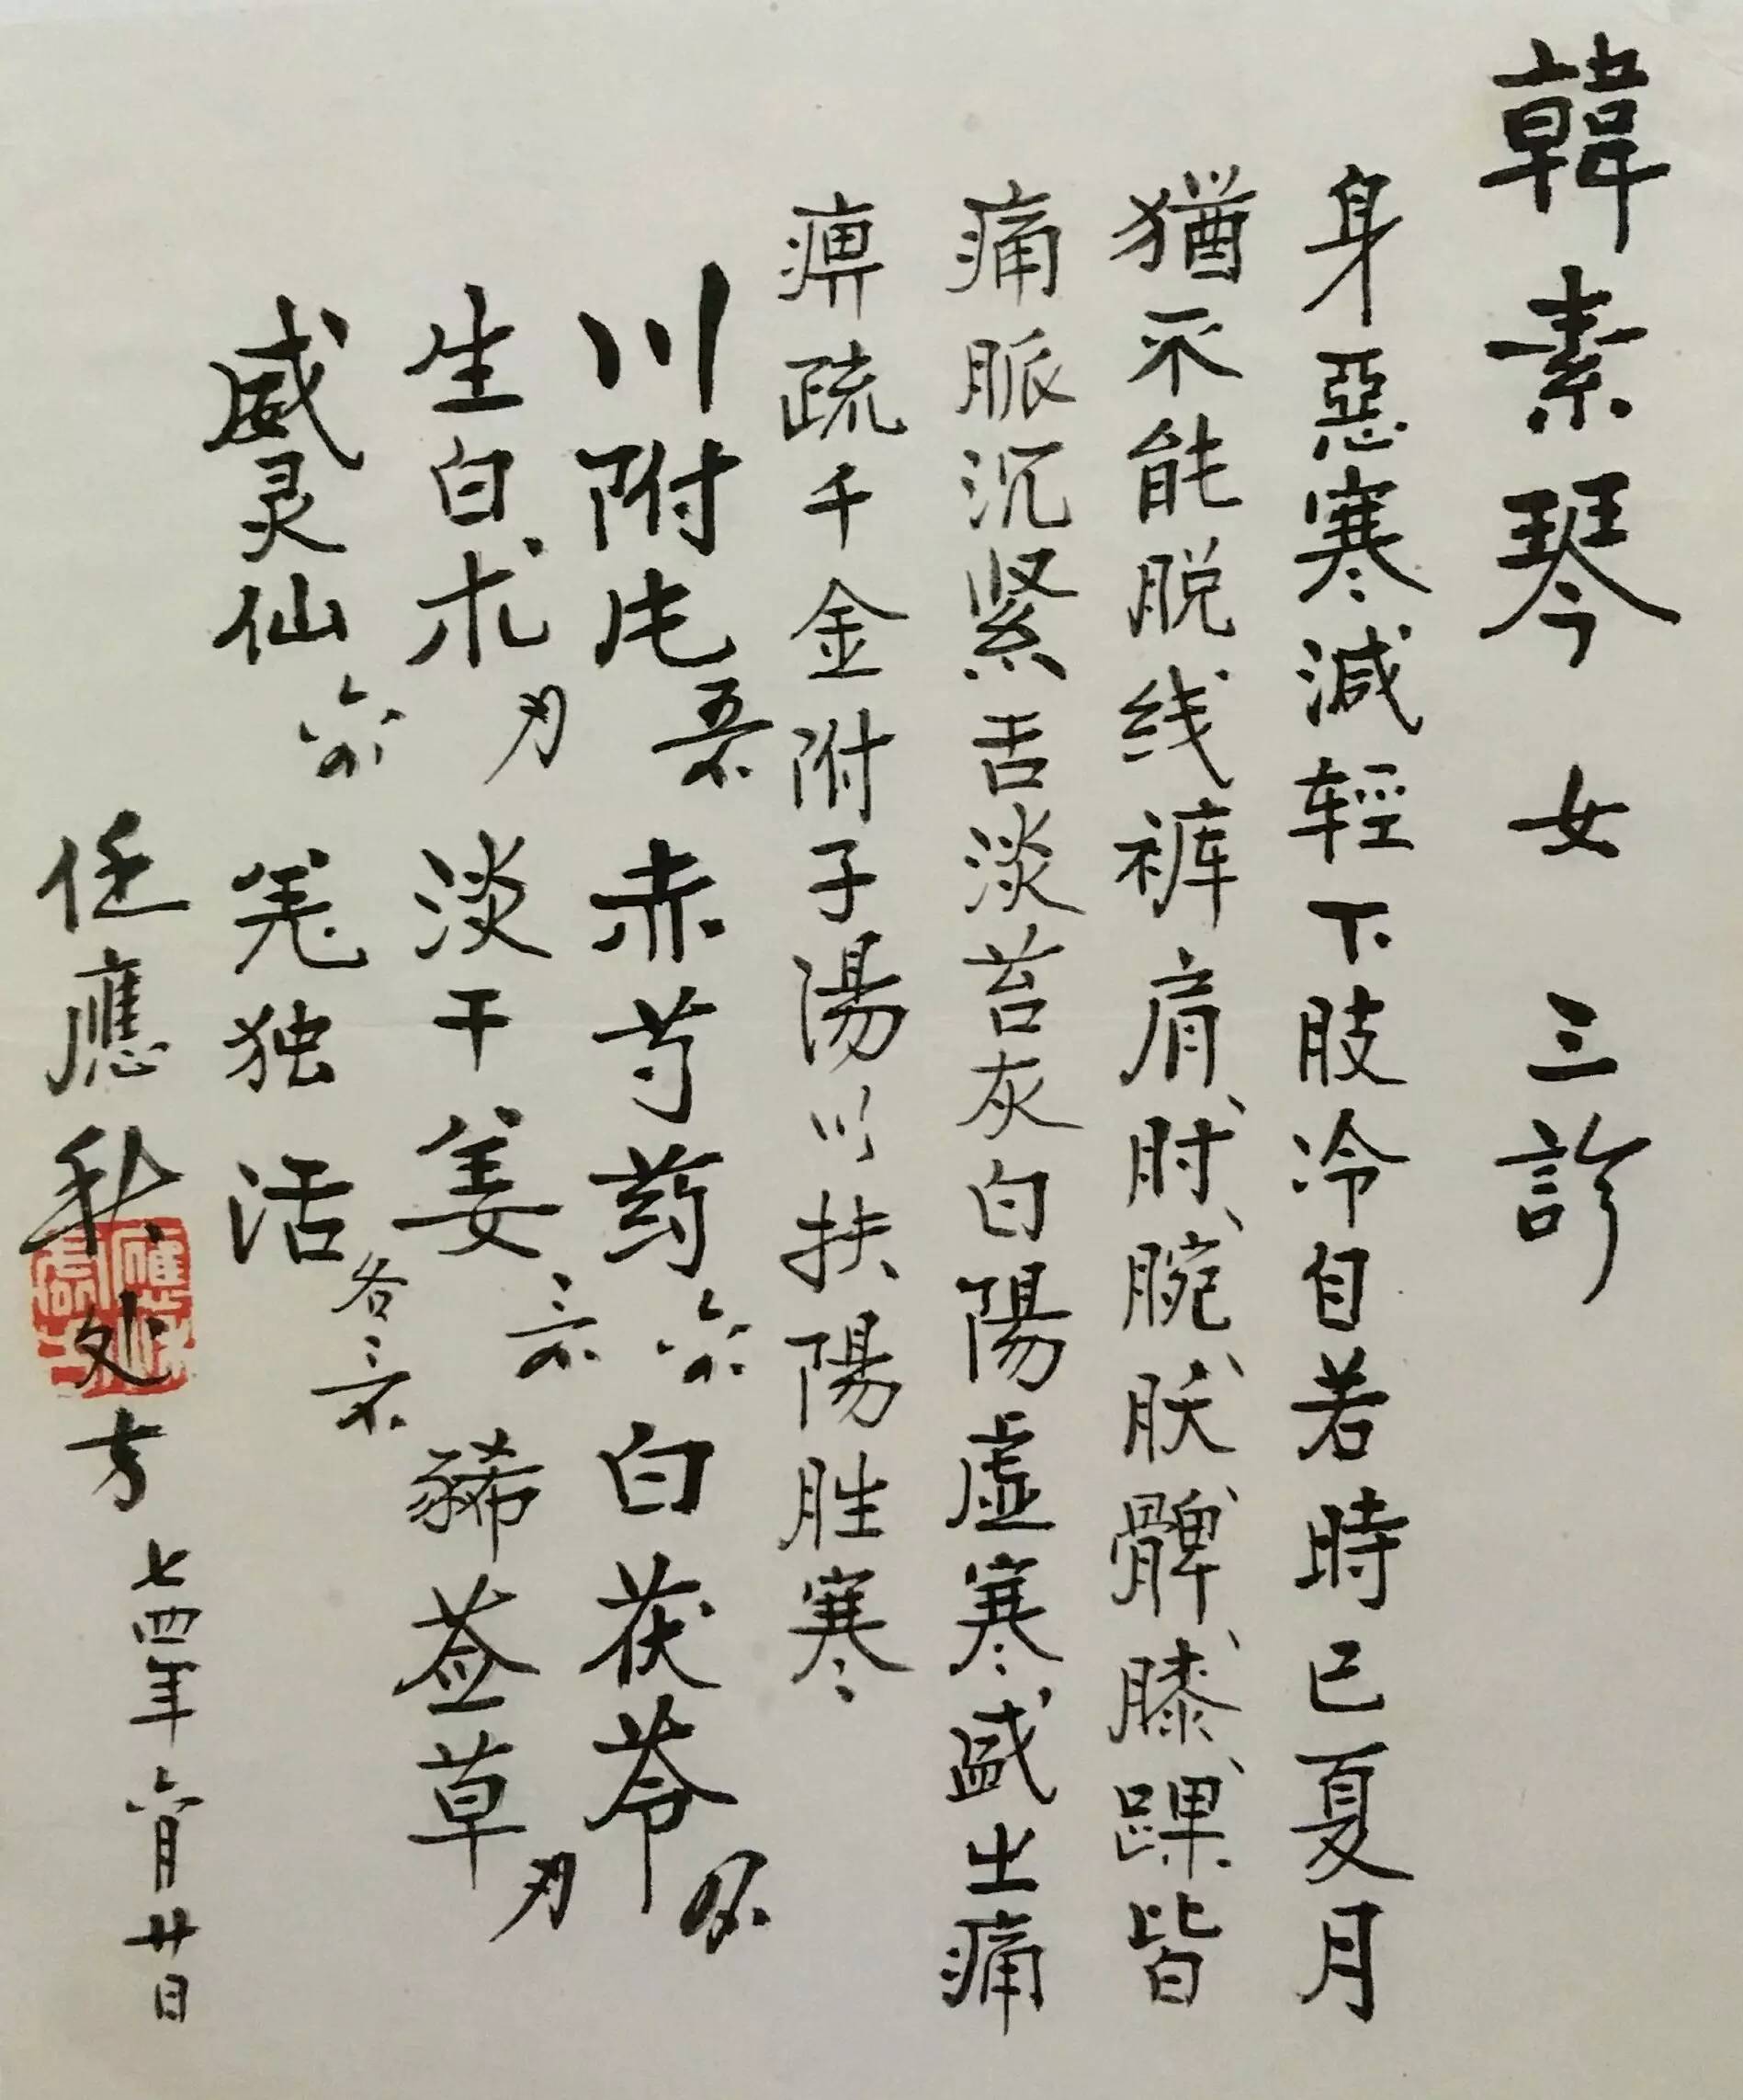 韓素琴 女 三診
身惡寒減輕下肢冷自若時已夏月
猶不能脱线裤肩、肘、腕、肷、髀、膝、踝皆
痛脈沉紧舌淡苔灰白陽虚寒盛之痛
痹疏千金附子湯以扶陽胜寒
川附片五钱 赤芍药六钱 白茯苓
生白术 淡干姜三钱 豨莶草
威灵仙六钱 羌独活各三钱
任應秋处方 七四年六月廿日